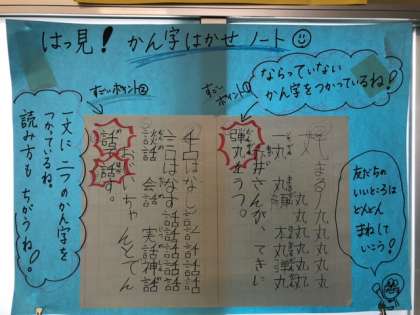 はっ見！かん字はかせノート
すごいポイント①
ならっていない
かん字をつかっているね！
すごいポイント②
一文に二つのかん字を
つかっているね。
読み方も
ちがうね！
友だちの
いいところは
どんどん
まねして
いこう！
丸
まる
丸丸丸丸丸丸
一丸
本丸
弾丸
さんが、てきに
弾丸をうつ。
話
はなし
はなす
話話話話話
会話
実話
神話
おじいちゃんとでん
話で話す。